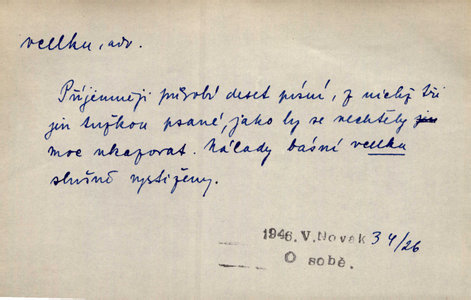 vcelku, adv.
Příjemněji působí deset písní, z nichž tři
jen tužkou psané, jako by se nechtěly jen
moc ukazovat. Nálady básní vcelku
slušně vystiženy.
1946. V. Novák 34/26
O sobě.